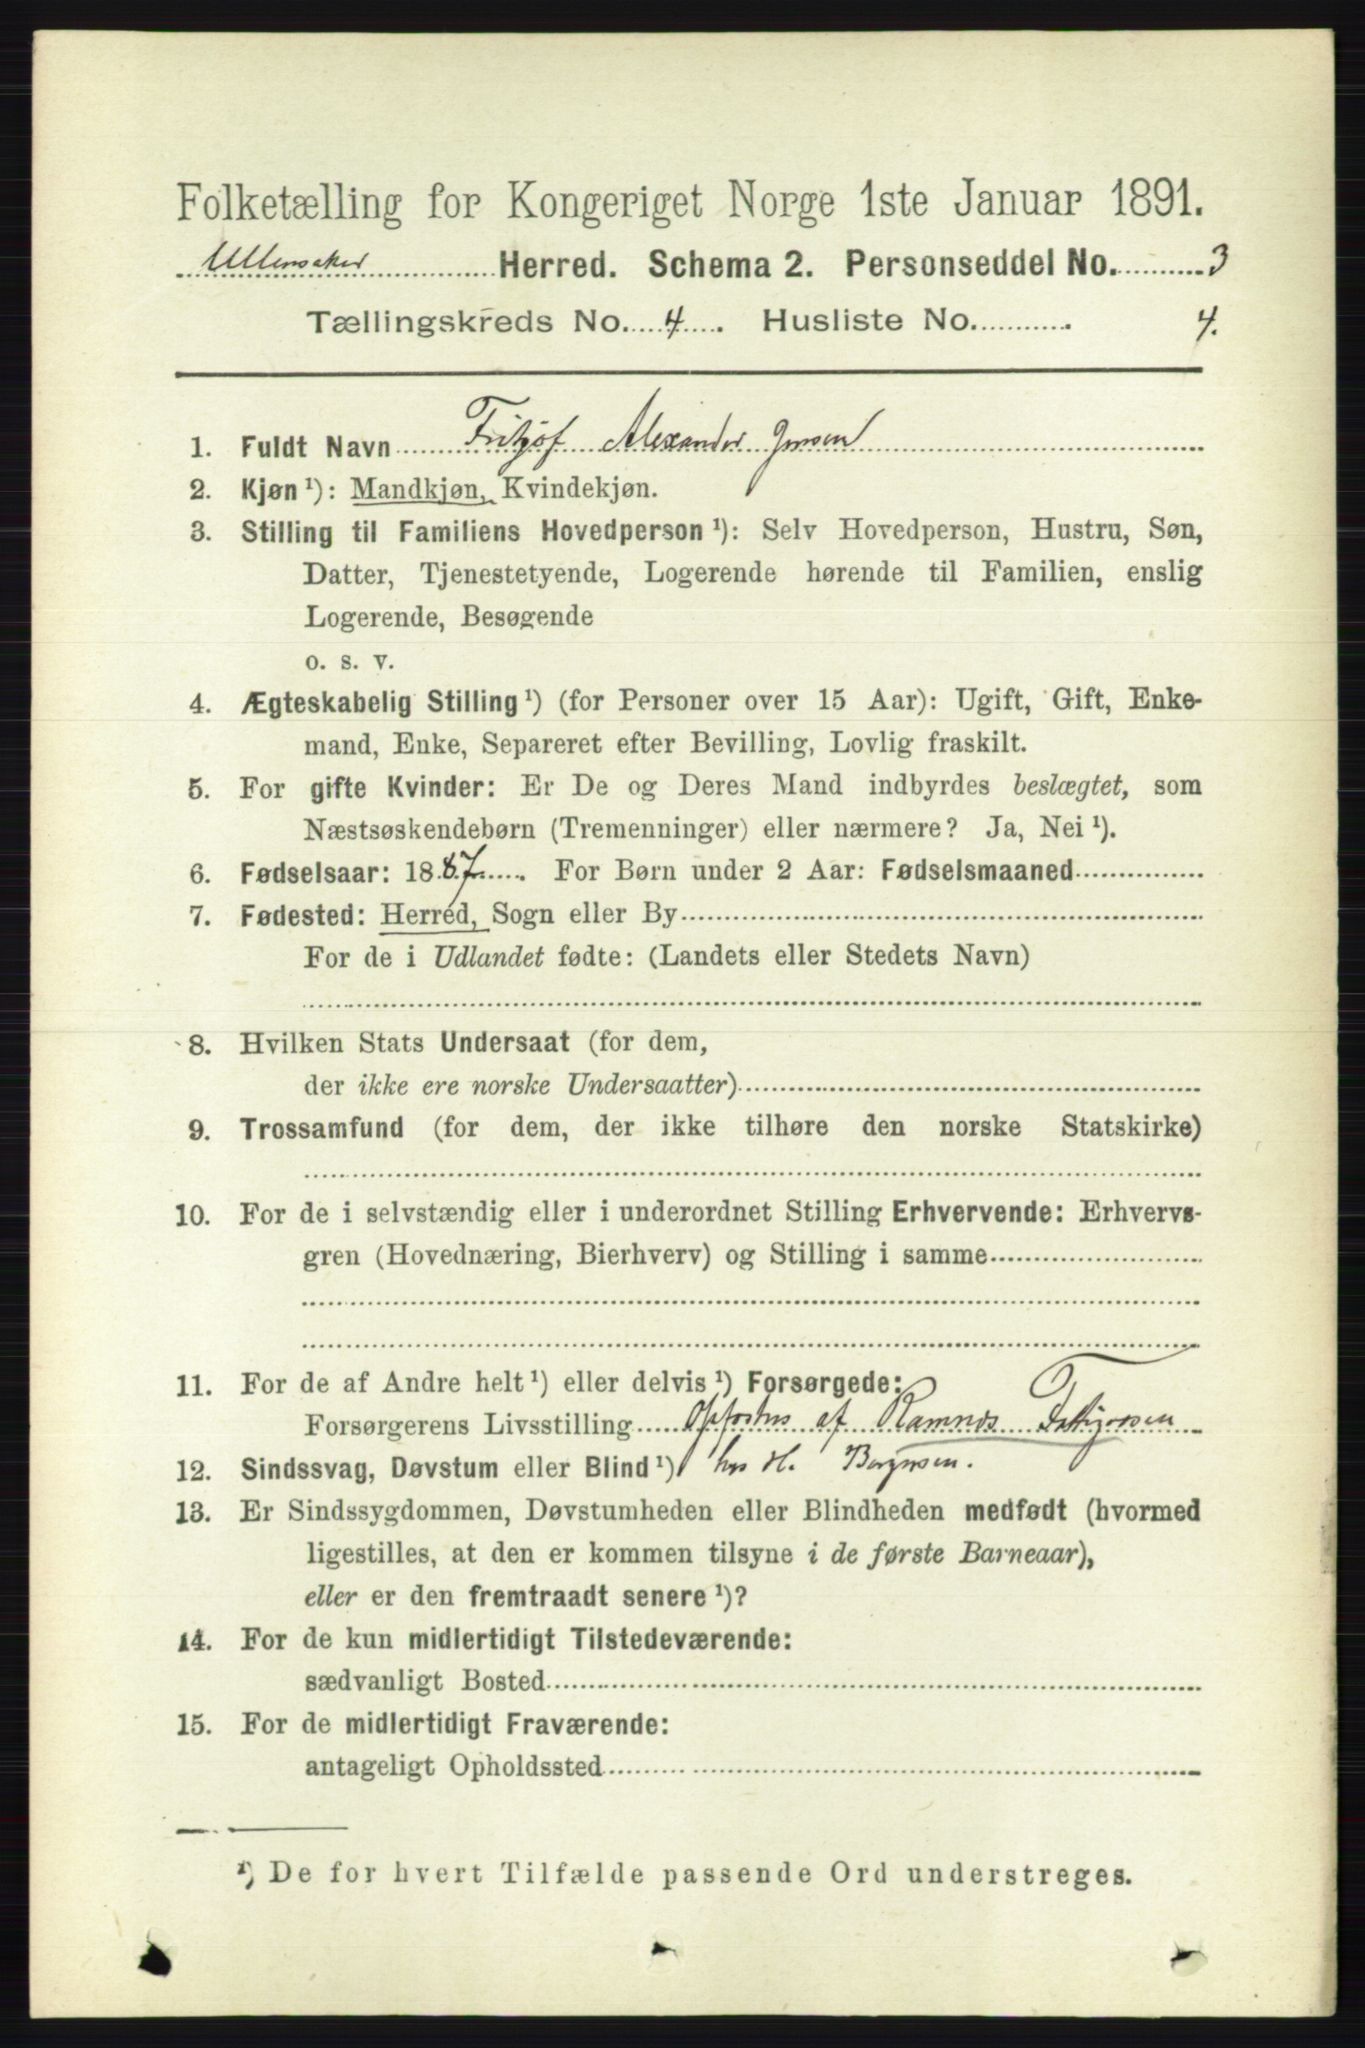 Folketælling for Kongeriget Norge 1ste Januar 1891.
Ullensaker Herred. Schema 2. Personseddel No. 3
Tællingskreds No. 4. Husliste No. 4.
1. Fuldt Navn Frithjof Alexander Jensen
2. Kjøn¹): Mandkjøn, Kvindekjøn.
3. Stilling til Familiens Hovedperson¹): Selv Hovedperson, Hustru, Søn,
Datter, Tjenestetyende, Logerende hørende til Familien, enslig
Logerende, Besøgende
o. s. v.
4. Ægteskabelig Stilling¹) (for Personer over 15 Aar): Ugift, Gift, Enke-
mand, Enke, Separeret efter Bevilling, Lovlig fraskilt.
5. For gifte Kvinder: Er De og Deres Mand indbyrdes beslægtet, som
Næstsøskendebørn (Tremenninger) eller nærmere? Ja, Nei¹).
6. Fødselsaar: 1887. For Børn under 2 Aar: Fødselsmaaned
7. Fødested: Herred, Sogn eller By
For de i Udlandet fødte: (Landets eller Stedets Navn)
8. Hvilken Stats Undersaat (for dem,
der ikke ere norske Undersaatter)
9. Trossamfund (for dem, der ikke tilhøre den norske Statskirke)
10. For de i selvstændig eller i underordnet Stilling Erhvervende: Erhvervs-
gren (Hovednæring, Bierhverv) og Stilling i samme
11. For de af Andre helt¹) eller delvis¹) Forsørgede:
Forsørgerens Livsstilling af
12. Sindssvag, Døvstum eller Blind¹) hos H.
13. Er Sindssygdommen, Døvstumheden eller Blindheden medfødt (hvormed
ligestilles, at den er kommen tilsyne i de første Barneaar),
eller er den fremtraadt senere¹)?
14. For de kun midlertidigt Tilstedeværende:
sædvanligt Bosted
15. For de midlertidigt Fraværende:
antageligt Opholdssted
¹) De for hvert Tilfælde passende Ord understreges.